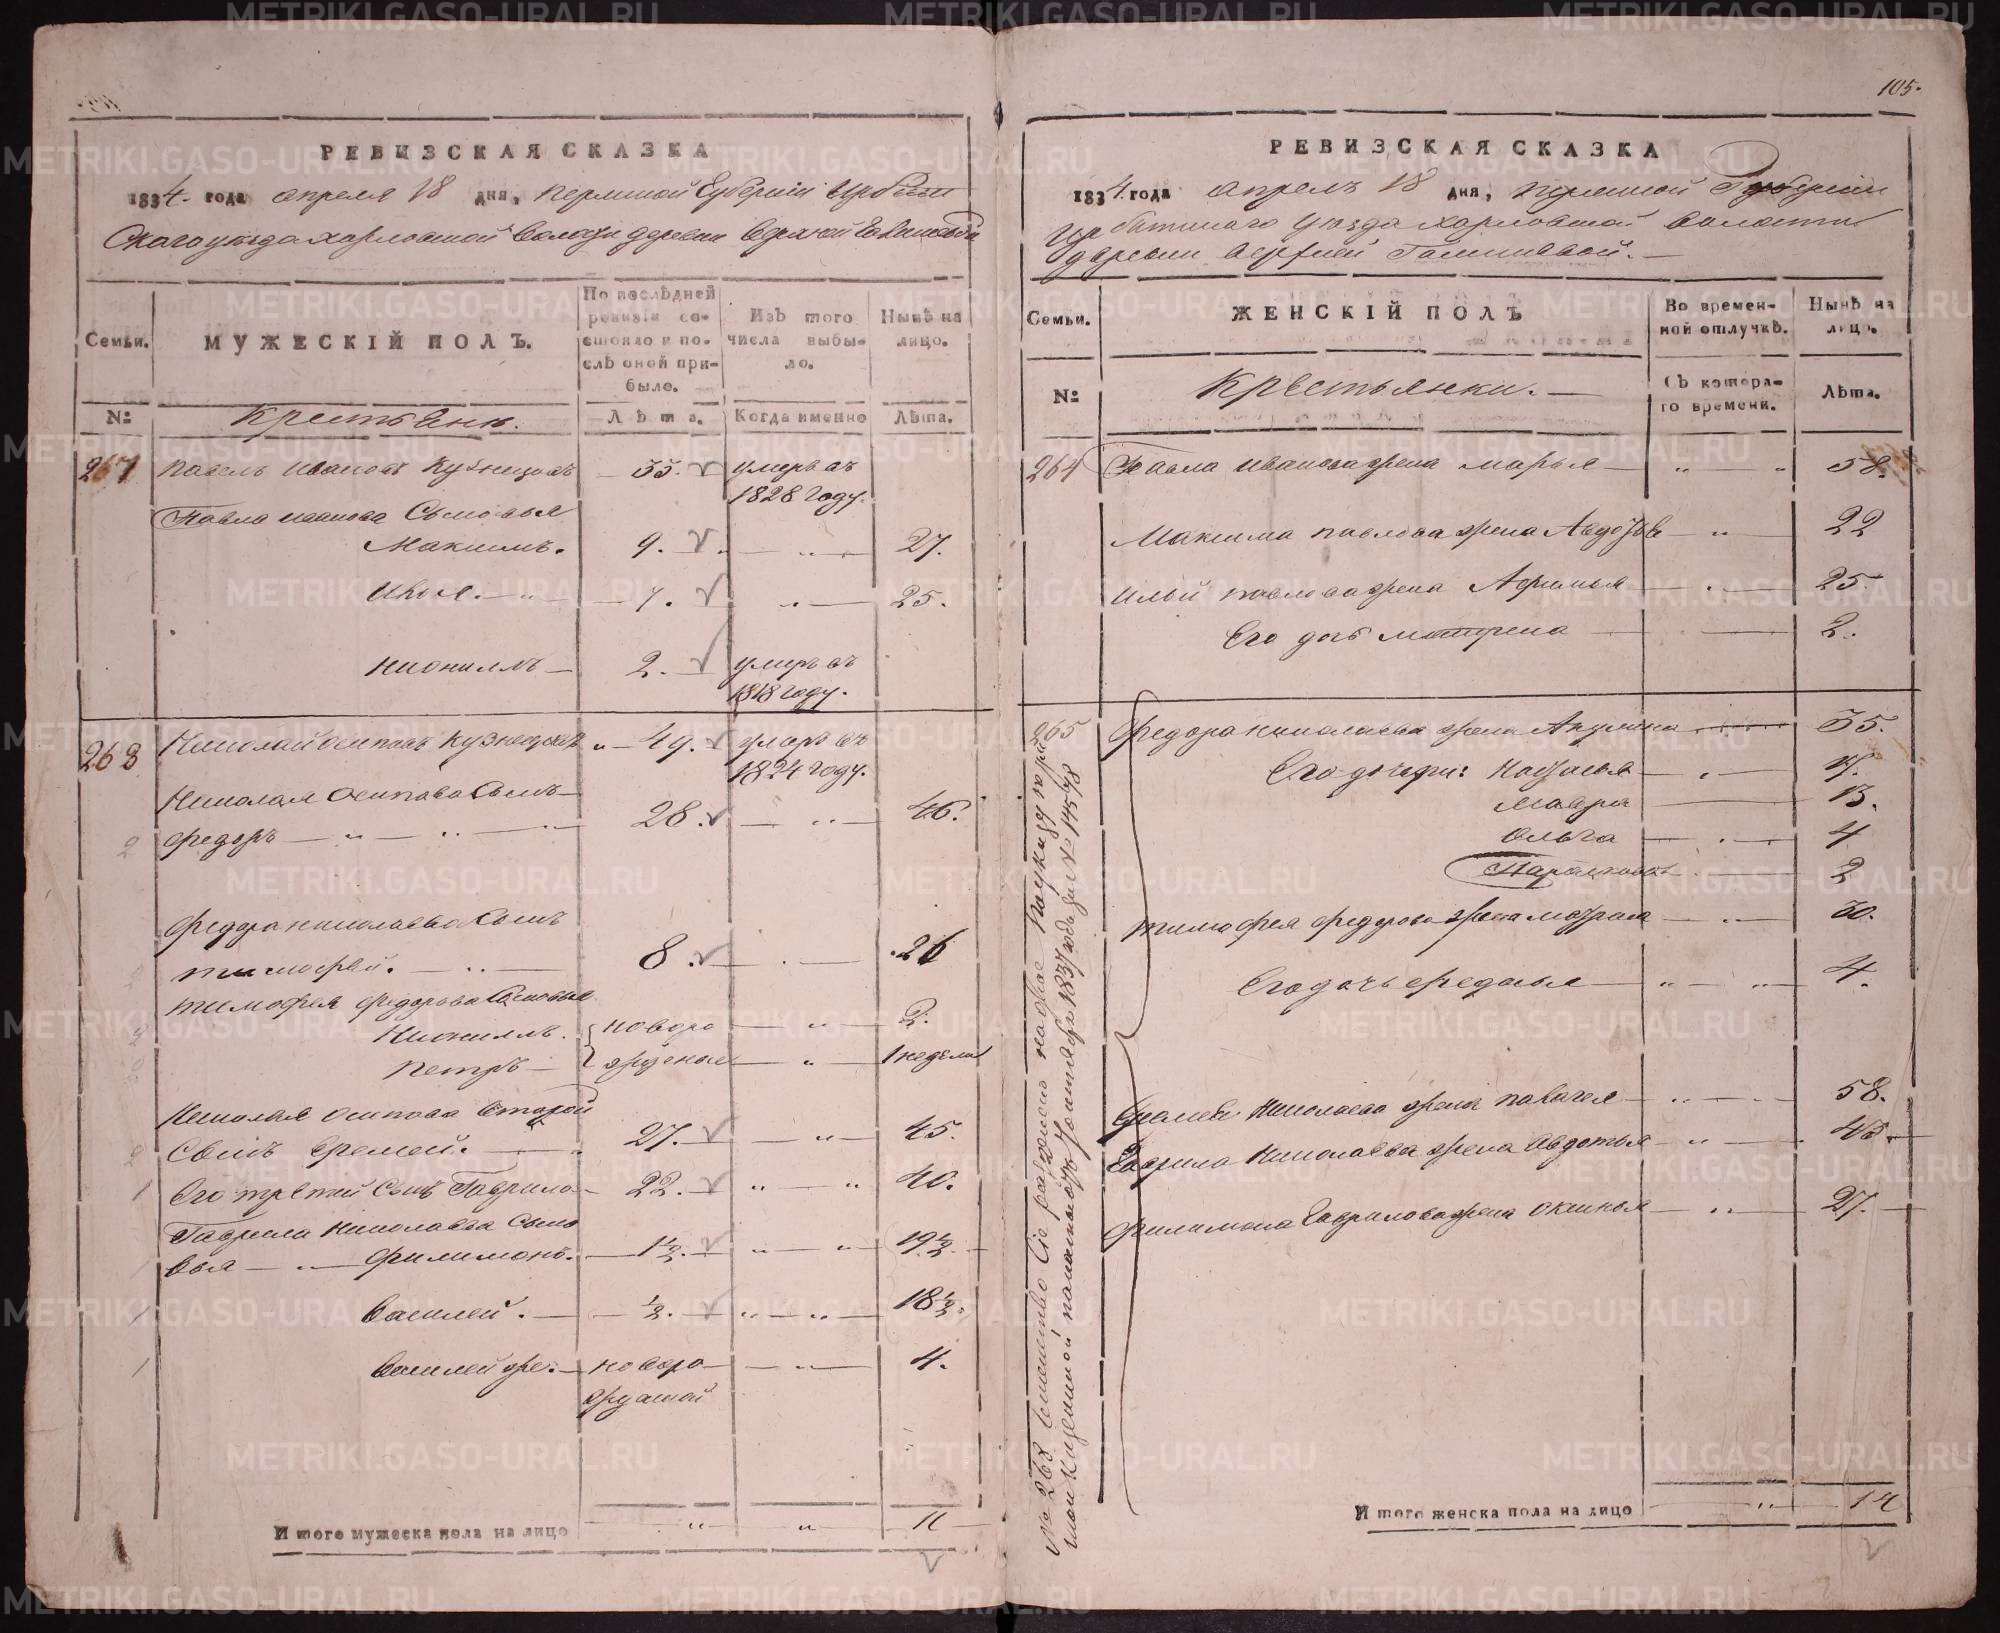 РЕВИЗСКАЯ СКАЗКА
1834. года апреля 18 дня, пермской Губернiи Ирбит
Скаго уезда харловской Волости деревни Верхней
Семьи.
МУЖЕСКІЙ ПОЛЪ.
По послѣдней ревизіи состояло и послѣ оной прибыло.
Изъ того числа выбыло.
Нынѣ на лицо.
№
Крестьяне.
Лѣта.
Когда именно
Лѣта.
267 павелъ Ивановъ Кузнецовъ 55. умеръ въ
1828 году.
Павла иванова Сыновья
Максимъ. 9. 27.
Илья. 7. 25.
Нионилъ 2. умеръ въ
1818 году.
268 Николай осиповъ Кузнецовъ 49. умеръ въ
1824 году.
Николая Осипова Сынъ
федоръ 28. 46.
федора николаева Сынъ
тимофей. 8. 26
тимофея федорова Сыновья
Нионилъ. новоро 2.
петръ жденые 1 неделя
Николая осипова второй
Сынъ Еремей. 27. 45.
Его третей Сынъ Гаврило 22. 40.
Гаврила Николаева Сыно
вья филимонъ. 1 1/2. 19 1/2.
Василей. 1/2. 18 1/2.
Василей же. новоро 4.
жденой
И того мужеска пола на лицо 11
105.
РЕВИЗСКАЯ СКАЗКА
1834. года апрелъ 18 дня, пермской Губернiи
Ирбитскаго уезда харловской волости
деревни верхней
Семьи.
ЖЕНСКІЙ ПОЛЪ
Во временной отлучкѣ.
Нынѣ на лицо.
№
Крестьянки.
Съ котораго времени.
Лѣта.
264 Павла иванова жена марья 58.
Максима павлова жена Авдотья 22
Ильи павлова жена Афимья 25.
Его дочь матрена 2.
265 федора николаева жена Акулина 55.
Его дочери: Настасья 17.
мавра 13.
Ольга 4
Парасковья 2
тимофея федорова жена матрена 30.
Его дочь федосья 4.
Еремея Николаева жена палагея 58.
Гаврила Николаева жена Авдотья 45.
филимона Гаврилова жена окинья 27.
№ 268 Семейство Сіе
1837 года за № 14548
И того женска пола на лицо 14